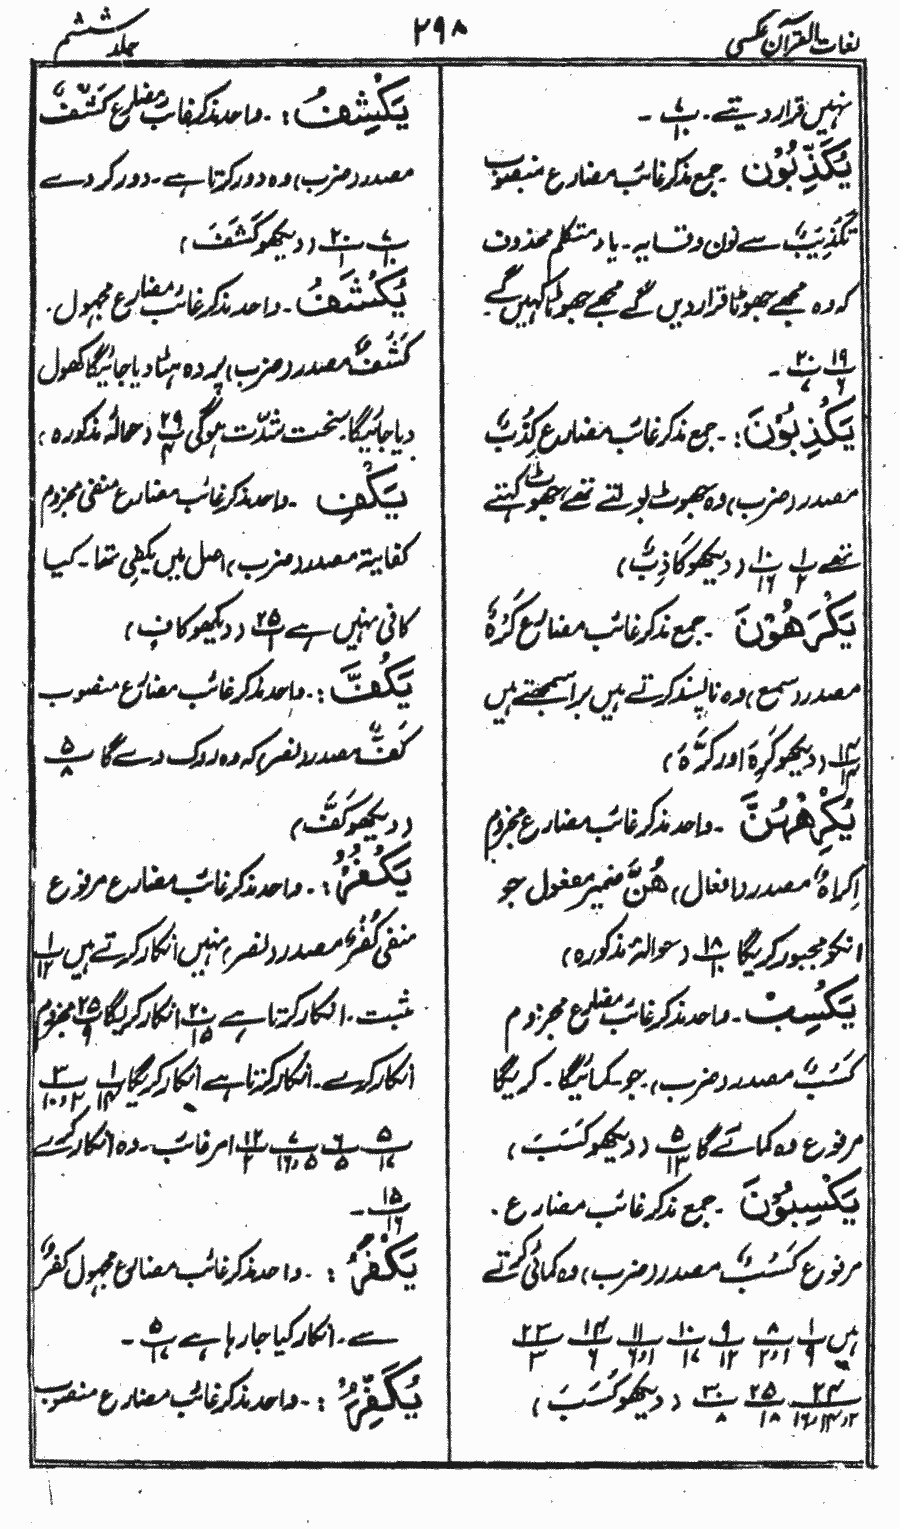 لغات القرآن عکسی
۲۹۸
جلد ششم
نہیں قرار دیتے۔ ۷/۱۰ ۔
یُکَذِّبُوْنِ ۔ جمع مذکر غائب مضارع منصوب
تَکْذِیْبٌ سے نون وقایہ۔ یاء متکلم محذوف
کہ وہ مجھے جھوٹا قرار دیں گے مجھے جھوٹا کہیں گے۔
۱۹/۶ ۲۰/۷ ۔
یَکْذِبُوْنَ :۔ جمع مذکر غائب مضارع کِذْبٌ
مصدر (ضرب) وہ جھوٹ بولتے تھے، جھوٹ کہتے
تھے ۱/۲ ۱۰/۱۶ (دیکھو کَاذِبٌ)
یَکْرَھُوْنَ ۔ جمع مذکر غائب مضارع کُرْہٌ
مصدر (سمع) وہ ناپسند کرتے ہیں برا سمجھتے ہیں
۱۴/۱۳ (دیکھو کَرِہَ اور کَرَّہَ)
یُکْرِھْھُنَّ ۔ واحد مذکر غائب مضارع مجزوم
اِکراہٌ مصدر (افعال) ھُنَّ ضمیر مفعول جو
انکو مجبور کریگا ۱۸/۱۰ (حوالۂ مذکورہ)
یَکْسِبْ ۔ واحد مذکر غائب مضارع مجزوم
کَسْبٌ مصدر (ضرب) جو کمائیگا۔ کریگا
مرفوع وہ کمائے گا ۵/۱۳ (دیکھو کَسَبَ)
یَکْسِبُوْنَ ۔ جمع مذکر غائب مضارع ۔
مرفوع کَسْبٌ مصدر (ضرب) وہ کمائی کرتے
ہیں ۱/۹ ۸/۱و۲ ۹/۱۲ ۱۰/۱۷ ۱۱/۱و۶ ۱۴/۶ ۲۳/۳
۲۴/۲و۱۴و۱۶ ۲۵/۱۸ ۳۰/۸ (دیکھو کَسَبَ)
یَکْشِفُ :۔ واحد مذکر غائب مضارع کَشْفٌ
مصدر (ضرب) وہ دور کرتا ہے۔ دور کردے
۷/۱۰ ۲۰/۱ (دیکھو کَشَفَ)
یُکْشَفُ ۔ واحد مذکر غائب مضارع مجہول ۔
کَشْفٌ مصدر (ضرب) پردہ ہٹا دیا جائیگا کھول
دیا جائیگا۔ سخت شدّت ہوگی ۲۹/۴ (حوالۂ مذکورہ)
یَکْفِ ۔ واحد مذکر غائب مضارع منفی مجزوم
کفایۃ مصدر (ضرب) اصل میں یکفِی تھا۔ کیا
کافی نہیں ہے ۲۵/۱ (دیکھو کافٍ)
یَکُفَّ :۔ واحد مذکر غائب مضارع منصوب
کَفٌّ مصدر (نصر) کہ وہ روک دے گا ۵/۸
(دیکھو کَفَّ)
یَکْفُرُ :۔ واحد مذکر غائب مضارع مرفوع
منفی کُفْرٌ مصدر (نصر) نہیں انکار کرتے ہیں ۱/۱۲
مثبت۔ انکار کرتا ہے ۲۰/۱۵ انکار کریگا ۲۵/۹ مجزوم
انکار کرے۔ انکار کرتا ہے انکار کریگا ۱/۱۴ ۳/۲و۱۰
۵/۱۷ ۶/۵ ۷/۵و۱۶ ۱۲/۲ امر غائب۔ وہ انکار کرے
۱۵/۱۶ ۔
یُکْفَرُ :۔ واحد مذکر غائب مضارع مجہول کُفْرٌ
سے۔ انکار کیا جا رہا ہے ۵/۱۷ ۔
یُکَفِّرُ :۔ واحد مذکر غائب مضارع منصوب